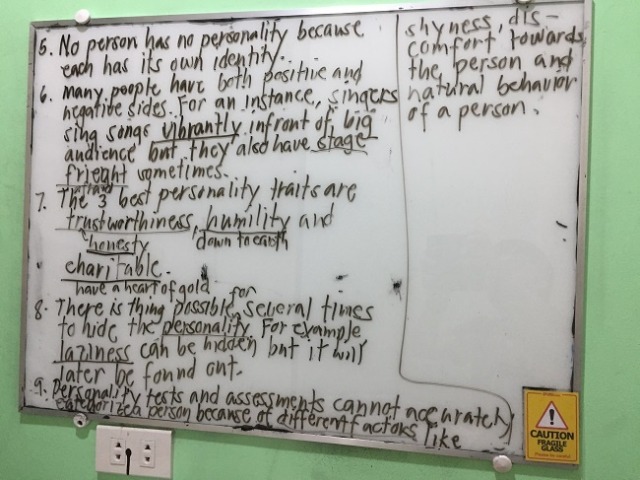 5. No person has no personality because
each has its own identity.
6. Many people have both positive and
negative sides. For an instance, singers
sing songs vibrantly infront of big
audience but they also have stage
frieght sometimes.
afraid
7. The 3 best personality traits are
trustworthiness, humility and
honesty down to earth
charitable.
have a heart of gold
8. There is thing possible for several times
to hide the personality. For example
laziness can be hidden but it will
later be found out.
9. Personality tests and assessments cannot accurately
categorized a person because of different factors like
shyness, dis-
comfort towards
the person and
natural behavior
of a person.
CAUTION
FRAGILE
GLASS